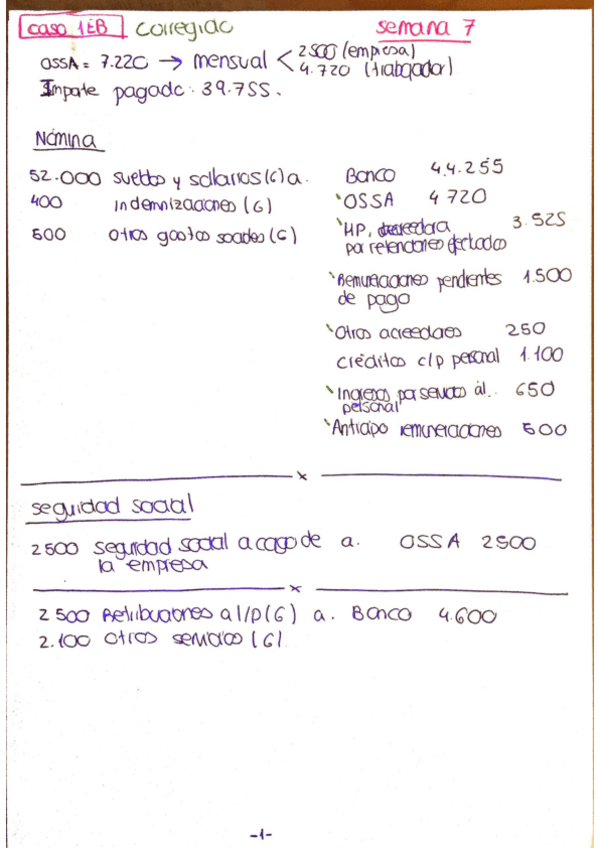 caso 1EB corregido semana 7
OSSA = 7.220 → mensual < 2500 (empresa)
4.720 (trabajador)
Importe pagado: 39.755.
Nómina
52.000 sueldos y salarios (G) a. Banco 44.255
400 indemnizaciones (G) OSSA 4720
600 otros gastos sociales (G) HP, acreedora 3.525
por retenciones efectuadas
Remuneraciones pendientes 1.500
de pago
Otros acreedores 250
créditos c/p personal 1.100
Ingresos por servicios al.. 650
personal
Anticipo remuneraciones 600
x
seguridad social
2500 seguridad social a cargo de a. OSSA 2500
la empresa
x
2500 Retribuciones a l/p (G) a. Banco 4.600
2.100 otros servicios (G)
-1-